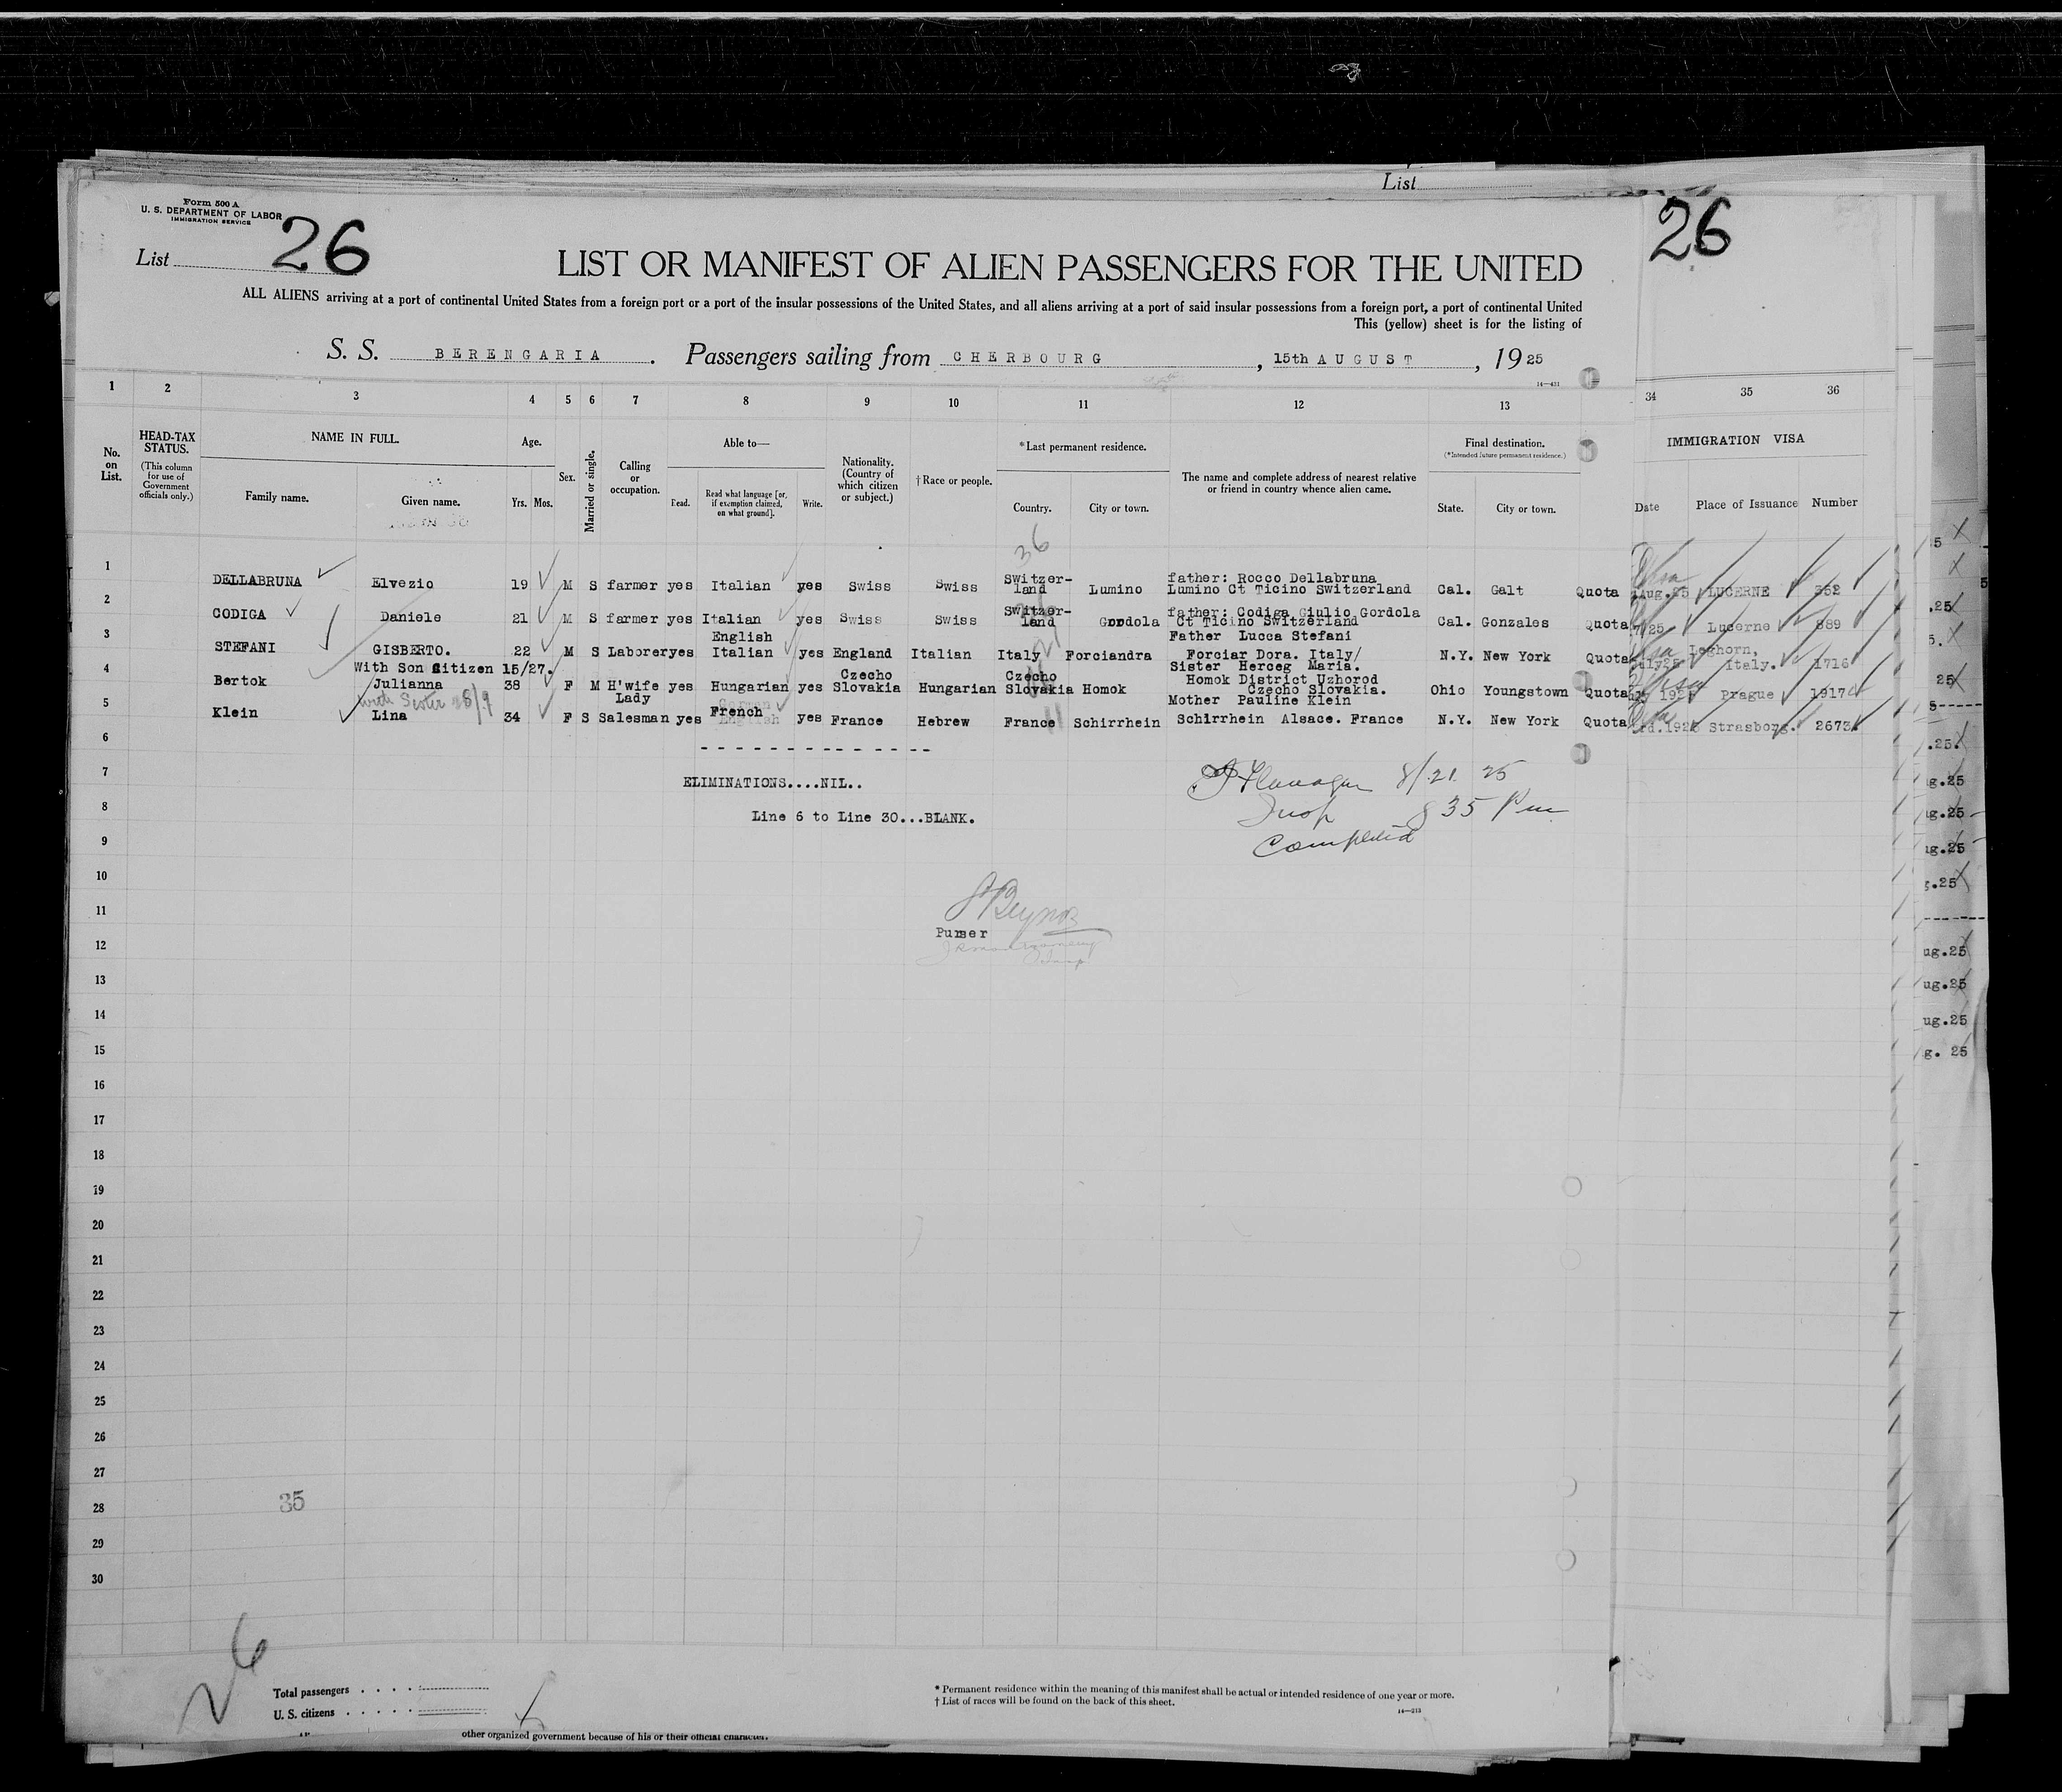 List
Form 500 A
U. S. DEPARTMENT OF LABOR
IMMIGRATION SERVICE
List 26
26
LIST OR MANIFEST OF ALIEN PASSENGERS FOR THE UNITED
ALL ALIENS arriving at a port of continental United States from a foreign port or a port of the insular possessions of the United States, and all aliens arriving at a port of said insular possessions from a foreign port, a port of continental United
This (yellow) sheet is for the listing of
S. S. BERENGARIA. Passengers sailing from CHERBOURG, 15th AUGUST, 1925
14—431
1 2 3 4 5 6 7 8 9 10 11 12 13 34 35 36
No. on List. HEAD-TAX STATUS. (This column for use of Government officials only.) NAME IN FULL. Family name. Given name. Age. Yrs. Mos. Sex. Married or single. Calling or occupation. Able to— Read. Read what language [or, if exemption claimed, on what ground]. Write. Nationality. (Country of which citizen or subject.) †Race or people. *Last permanent residence. Country. City or town. The name and complete address of nearest relative or friend in country whence alien came. Final destination. (*Intended future permanent residence.) State. City or town. IMMIGRATION VISA Date Place of Issuance Number
36
1 DELLABRUNA Elvezio 19 M S farmer yes Italian yes Swiss Swiss Switzer-land Lumino father: Rocco Dellabruna Lumino Ct Ticino Switzerland Cal. Galt Quota Aug.25 LUCERNE 352
2 CODIGA Daniele 21 M S farmer yes Italian yes Swiss Swiss Switzer-land Gordola father: Codiga Giulio Gordola Ct Ticino Switzerland Cal. Gonzales Quota 7/25 Lucerne 889
3 STEFANI GISBERTO. 22 M S Laborer yes English Italian yes England Italian Italy Forciandra Father Lucca Stefani Forciar Dora. Italy/ N.Y. New York Quota Leghorn, Italy. 1716
With Son Citizen 15/27.
4 Bertok Julianna 38 F M H'wife yes Hungarian yes Czecho Slovakia Hungarian Czecho Slovakia Homok Sister Herceg Maria. Homok District Uzhorod Czecho Slovakia. Ohio Youngstown Quota Prague 19174
with Sister 26/9
5 Klein Lina 34 F S Lady Salesman yes French yes France Hebrew France Schirrhein Mother Pauline Klein Schirrhein Alsace. France N.Y. New York Quota Strasborg. 2673
6
7 ELIMINATIONS....NIL..
Flanagan 8/21 25
8 Line 6 to Line 30...BLANK.
Insp 8 35 Pm
9
Completed
10
11
Purser
12
13
14
15
16
17
18
19
20
21
22
23
24
25
26
27
28 35
29
30
26
Total passengers
U. S. citizens
* Permanent residence within the meaning of this manifest shall be actual or intended residence of one year or more.
† List of races will be found on the back of this sheet.
14—213
other organized government because of his or their official character.